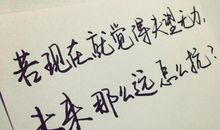 若现在就觉得失望无力,
未来那么远怎么抗?